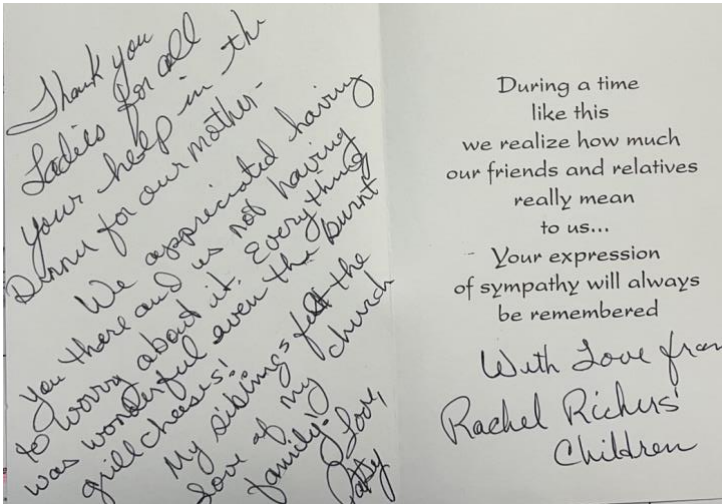 Thank you
Ladies for all
your help in the
Dinner for our mother-
We appreciated having
you there and us not having
to worry about it. Everything
was wonderful even the burnt
grill cheeses!
My siblings felt the
love of my church
family!
Love,
Patsy
During a time
like this
we realize how much
our friends and relatives
really mean
to us...
Your expression
of sympathy will always
be remembered
With Love from
Rachel Richers'
Children